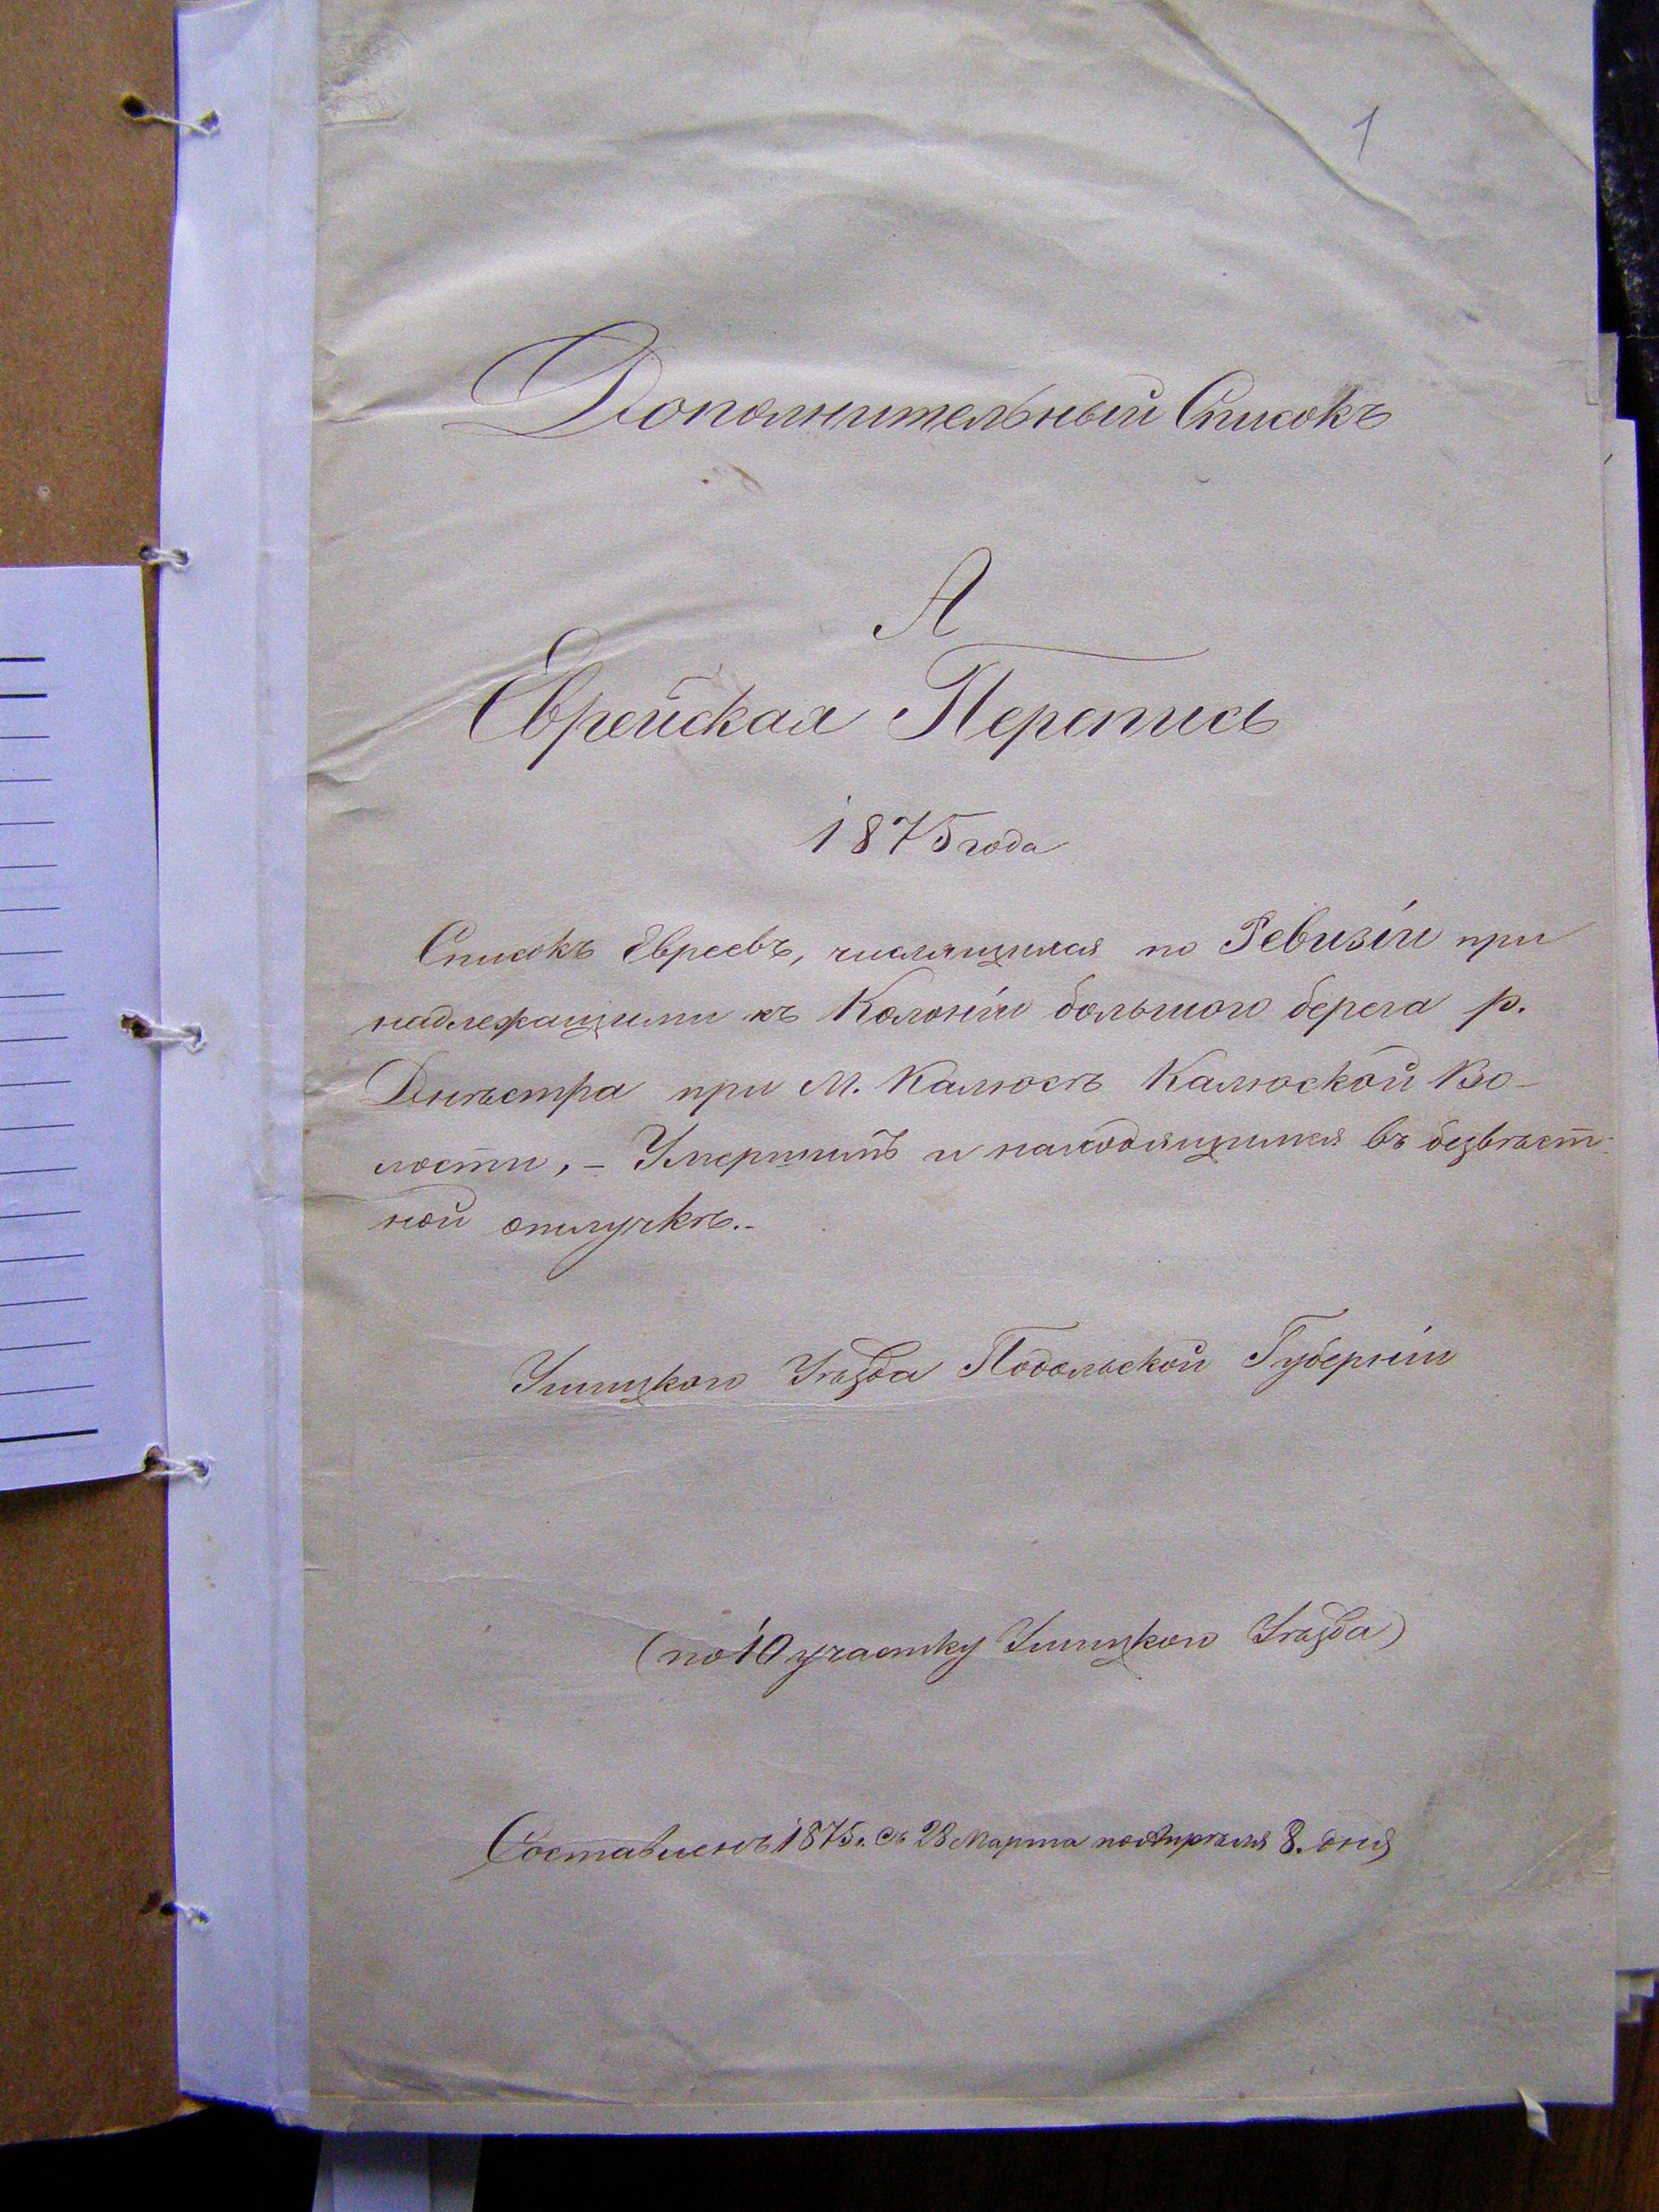 1
Дополнительный Списокъ
А
Еврейская Перепись
1875 года
Списокъ Евреевъ, числящихся по Ревизіи при
надлежащими къ Колоніи большого берега р.
Днѣстра при М. Калюсѣ Калюской Во-
лости, – Умершимъ и находящимся въ безвѣст-
ной отлучкѣ.
Ушицкого Уѣзда Подольской Губерніи
(по 10 участку Ушицкого Уѣзда)
Составленъ 1875 г. съ 28 Марта по Апрѣля 8. дня